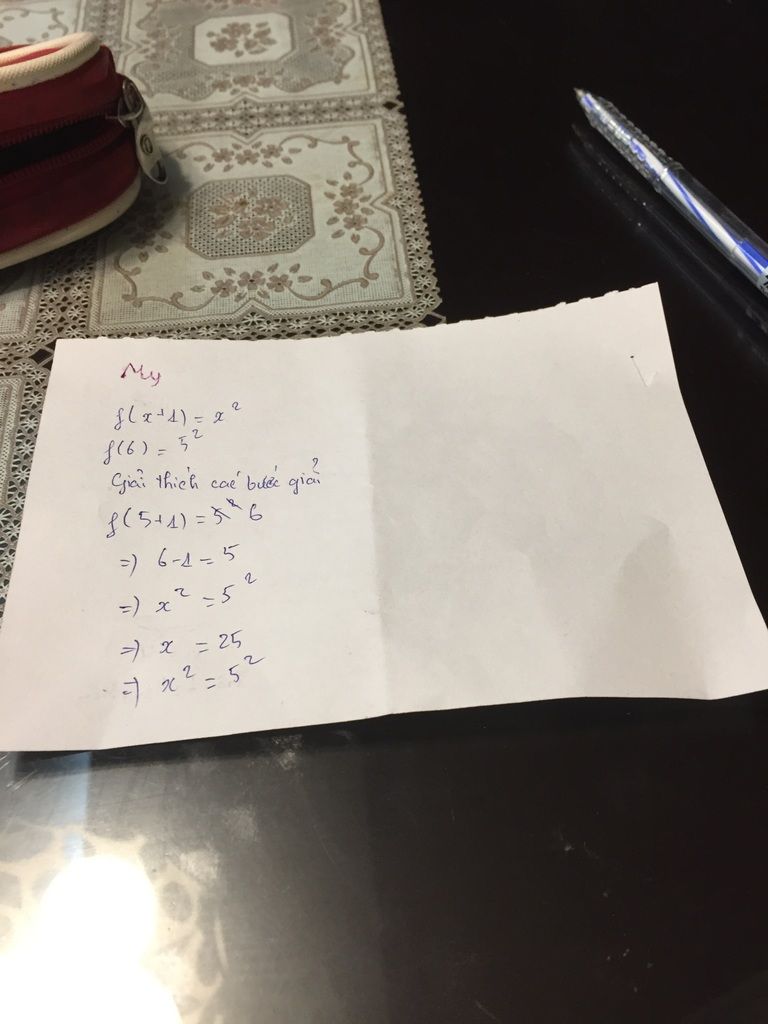 My
f(x+1) = x²
f(6) = 5²
Giải thích các bước giải?
f(5+1) = 5² 6
=) 6-1 = 5
=) x² = 5²
=) x = 25
=) x² = 5²